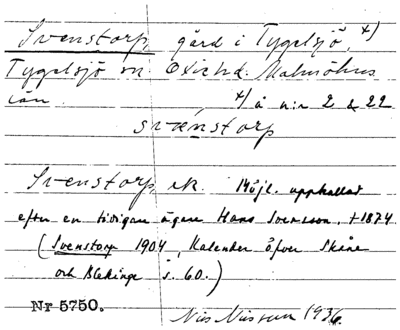 Svenstorp, gård i Tygelsjö, x)
Tygelsjö sn. Oxie hd. Malmöhus
län. x) å n:r 2 & 22
svænstorp
Svenstorp ek. Möjl. uppkallat
efter en tidigare ägare Hans Svensson, †1874
(Svenstorp 1904, Kalender öfver Skåne
och Blekinge s. 60.)
Nr 5750.
Nils Nilsson 1936.